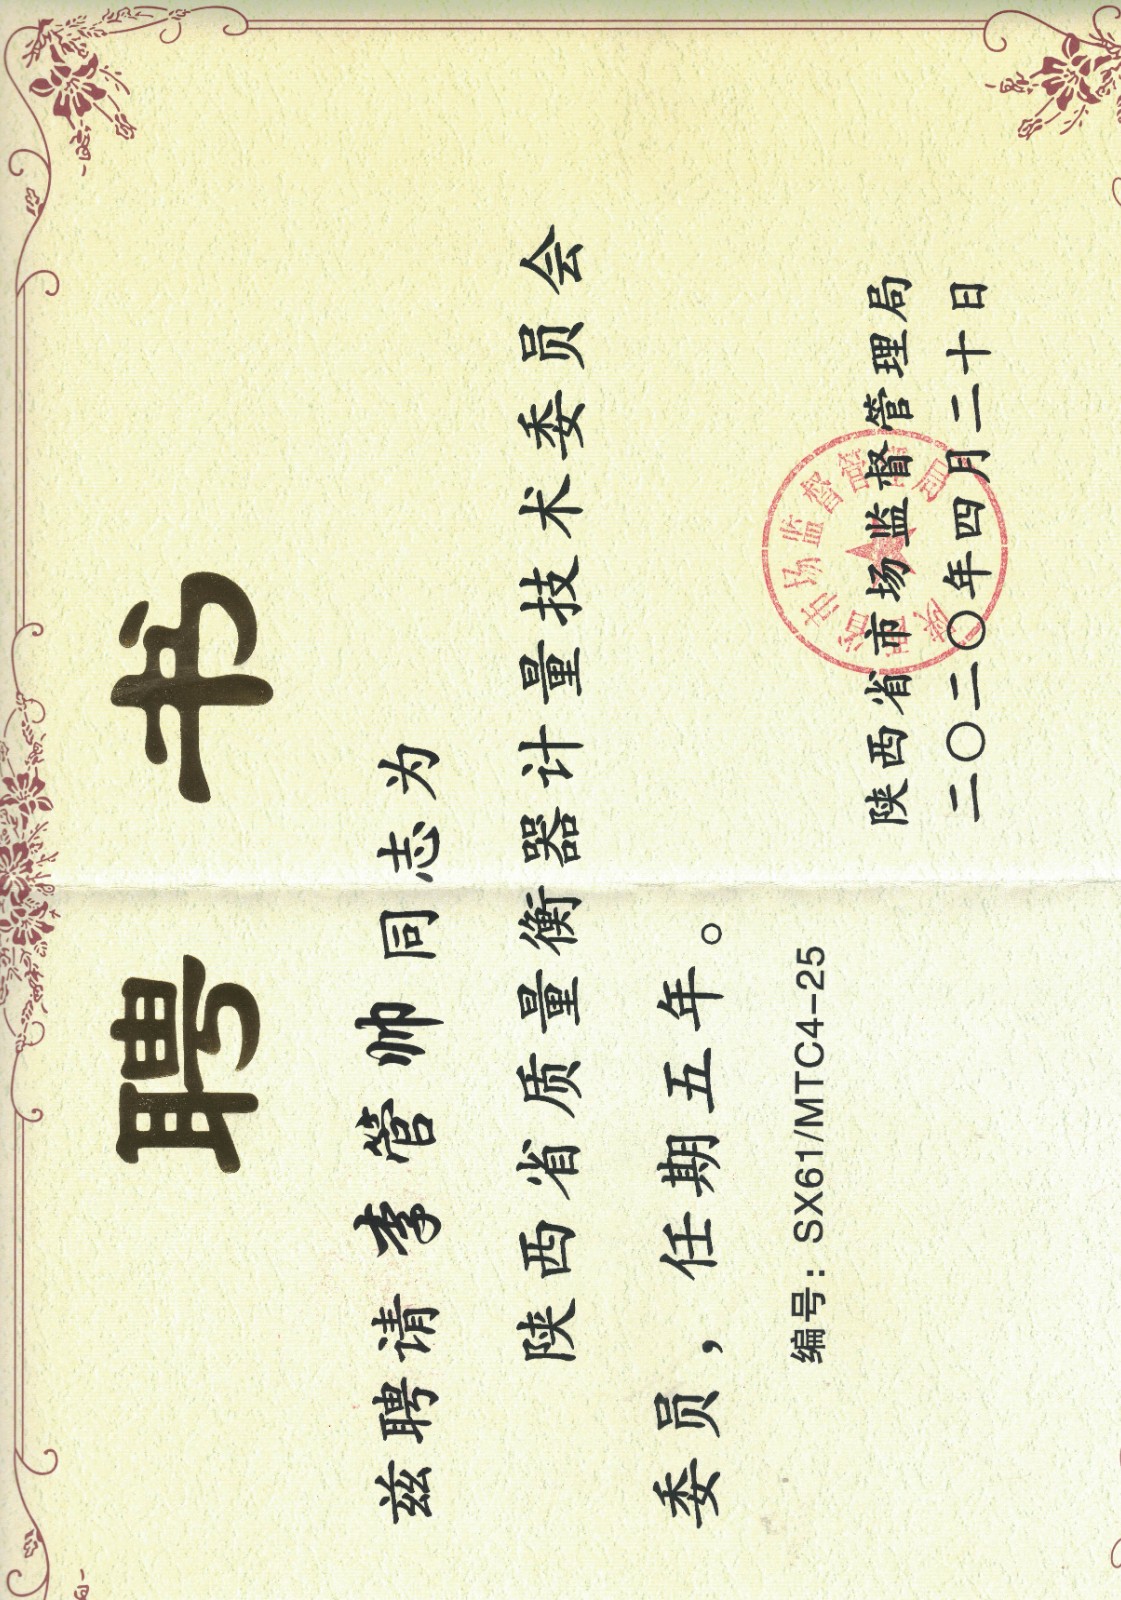 聘书
兹聘请李管帅同志为
陕西省质量衡器计量技术委员会
委员，任期五年。
编号：SX61/MTC4-25
陕西省市场监督管理局
二〇二〇年四月二十日
陕西省市场监督管理局